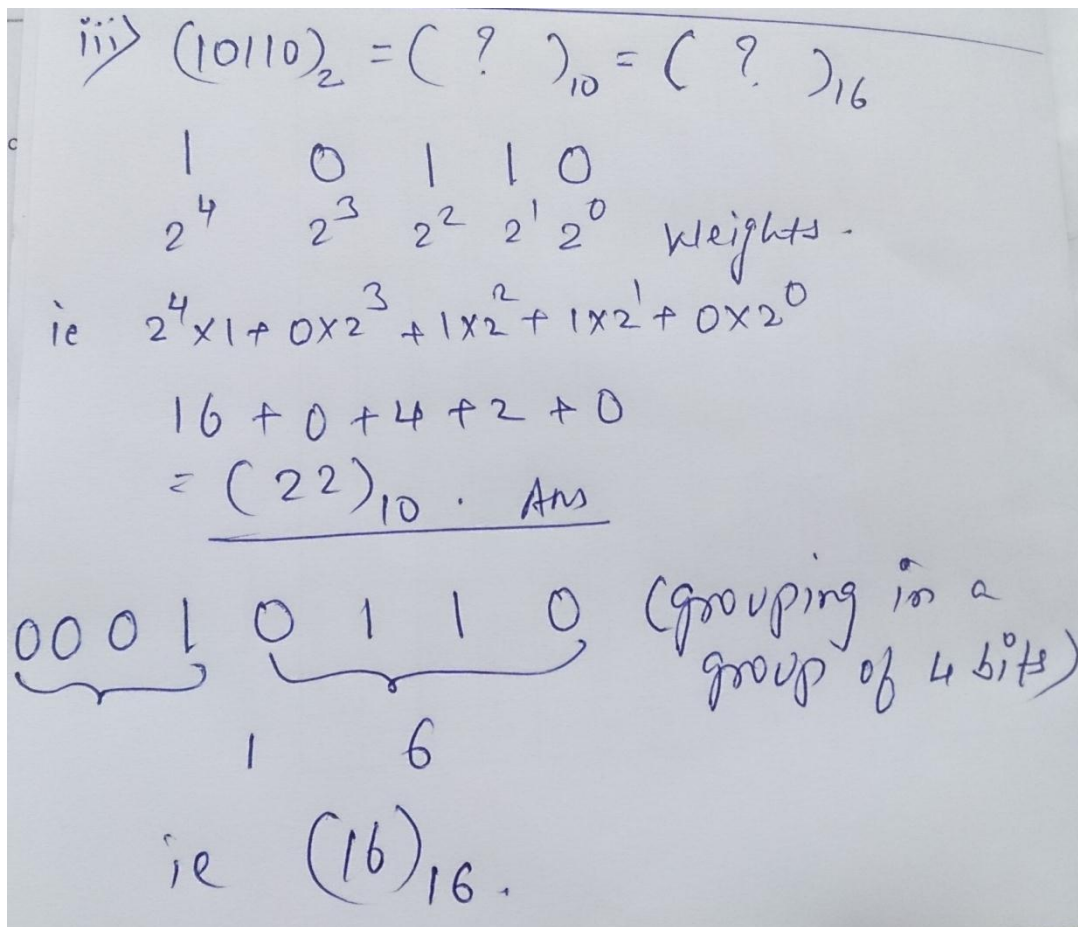 iii) (10110)₂ = ( ? )₁₀ = ( ? )₁₆
1 0 1 1 0
2⁴ 2³ 2² 2¹ 2⁰ Weights.
ie 2⁴×1+0×2³+1×2²+1×2¹+0×2⁰
16+0+4+2+0
= (22)₁₀. Ans
0001 0 1 1 0 (grouping in a
group of 4 bits)
1 6
ie (16)₁₆.